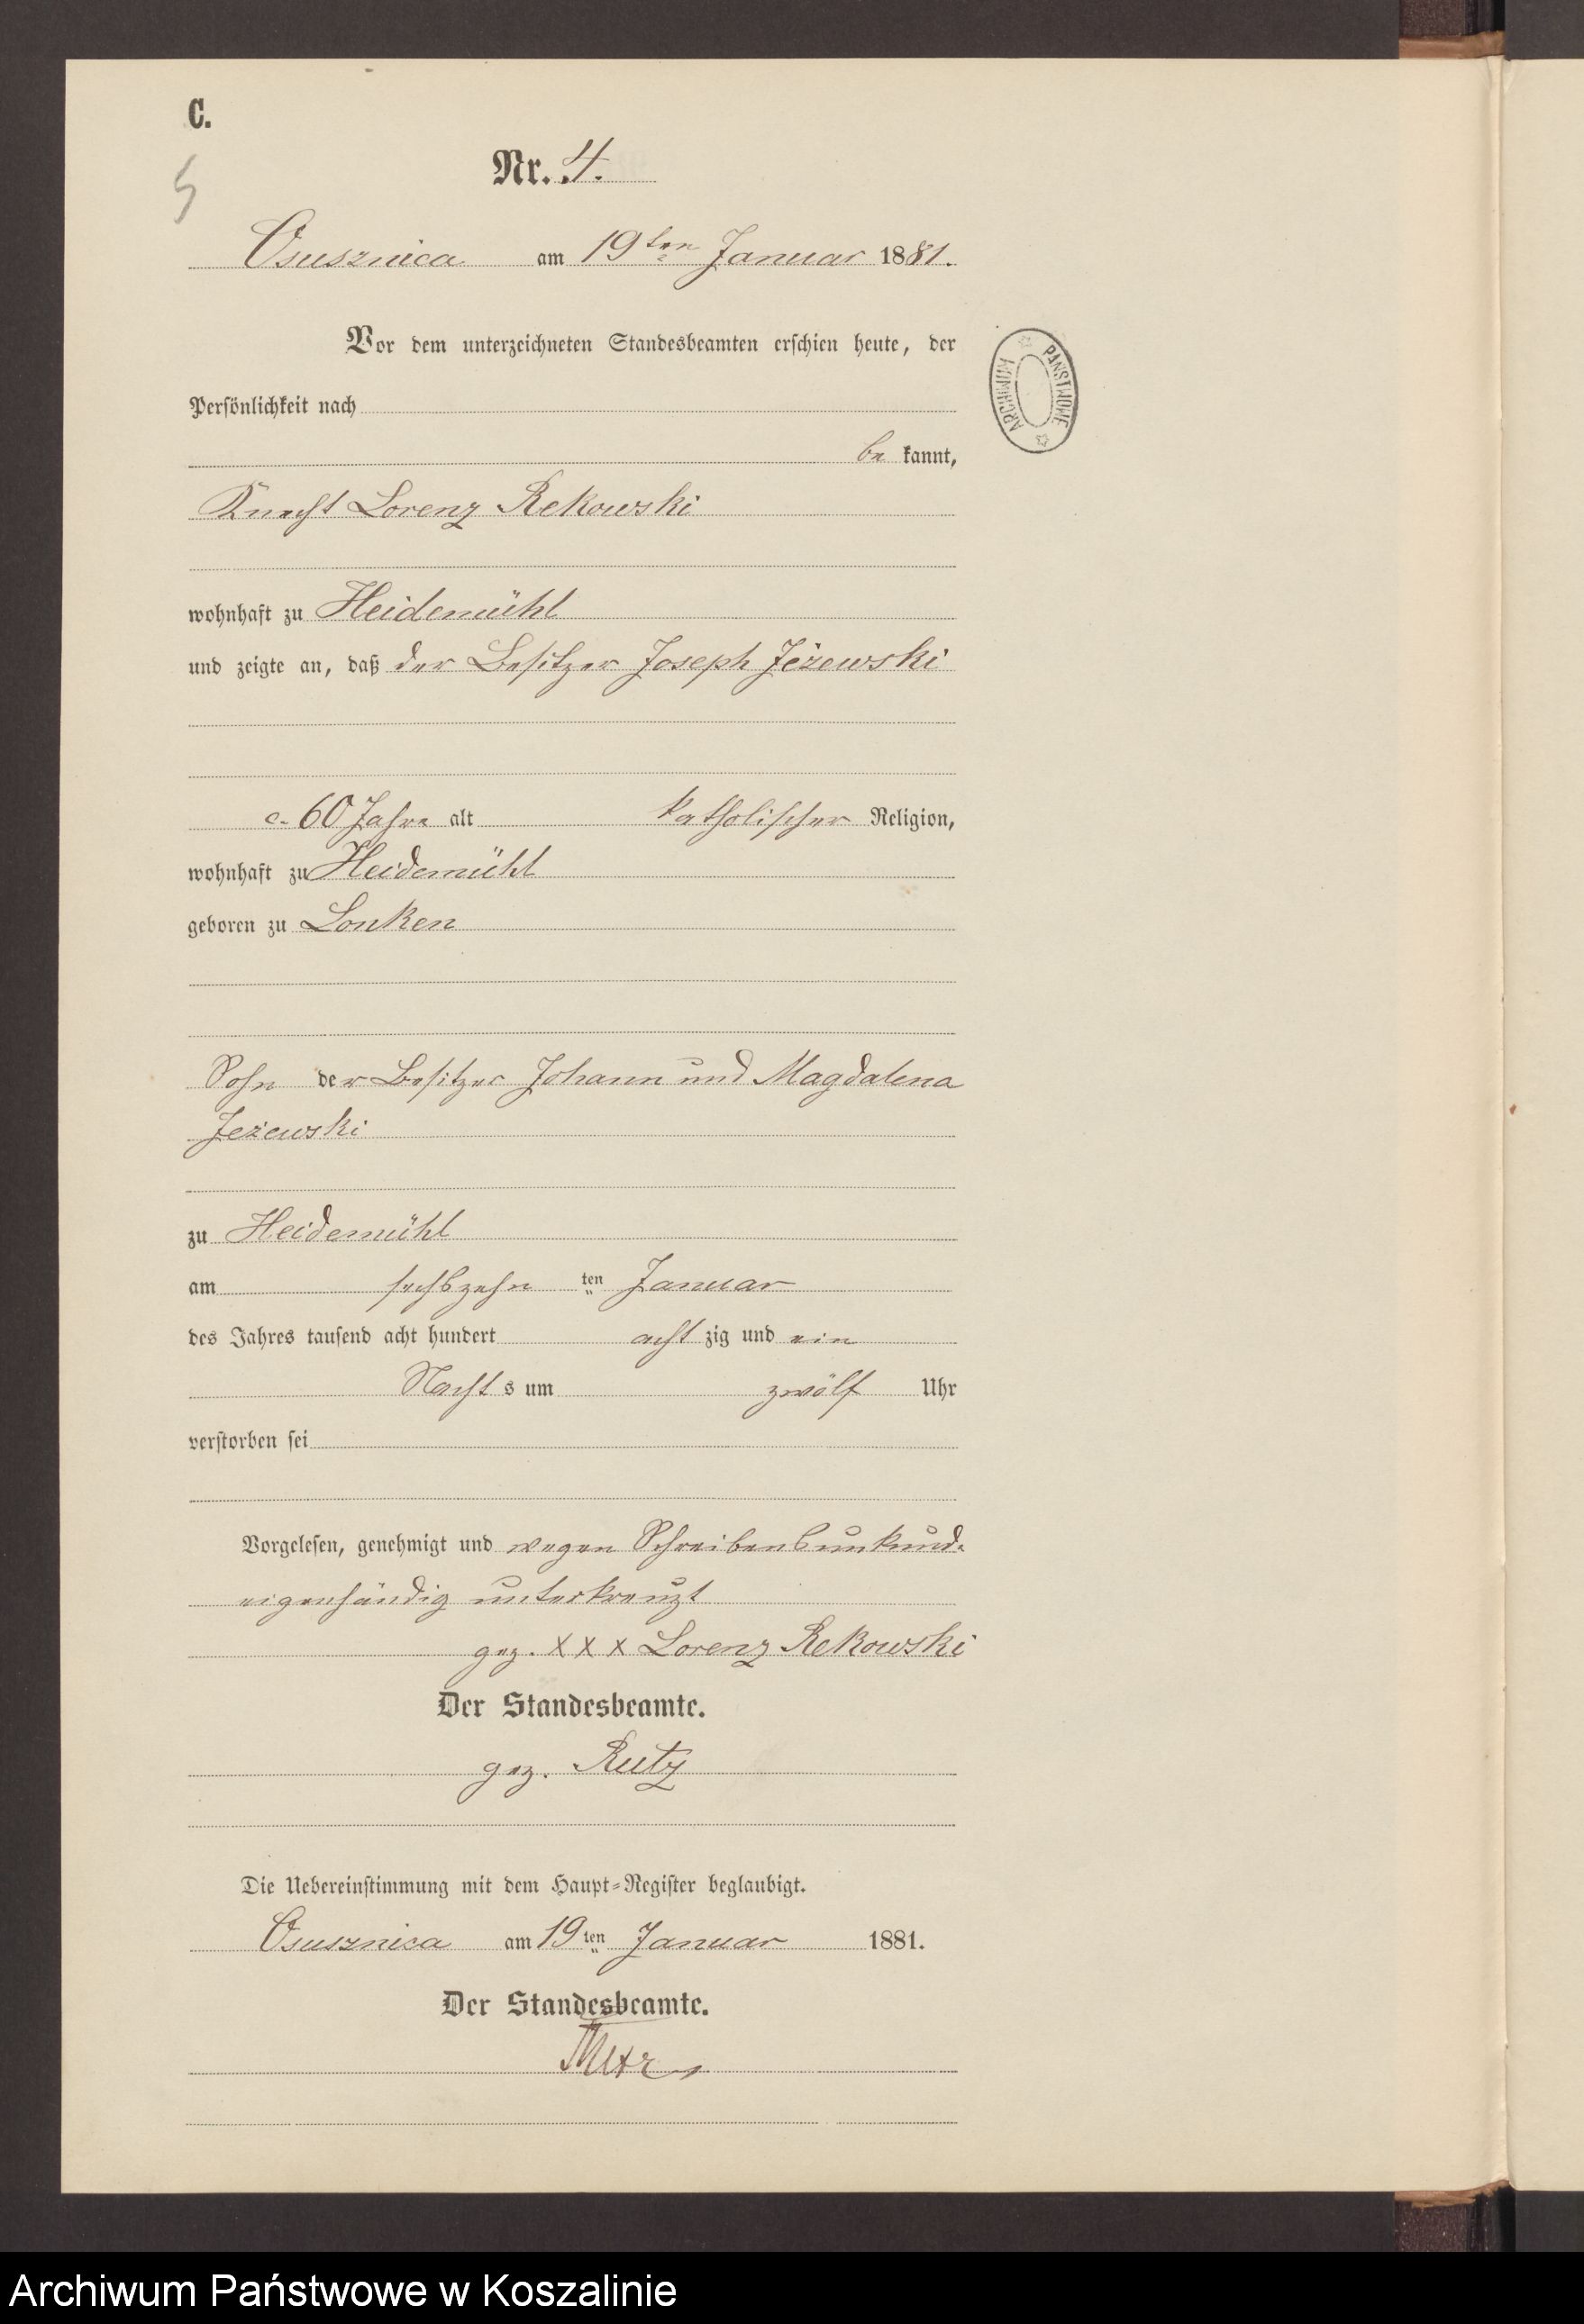 C.
5
Nr. 4.
Osusznica am 19ten Januar 1881.
Vor dem unterzeichneten Standesbeamten erschien heute, der
Persönlichkeit nach
be kannt,
Knecht Lorenz Rekowski
wohnhaft zu Heidemühl
und zeigte an, daß der Besitzer Joseph Jeżewski
c. 60 Jahre alt katholischer Religion,
wohnhaft zu Heidemühl
geboren zu Lonken
Sohn der Besitzer Johann und Magdalena
Jeżewski
zu Heidemühl
am sechszehn ten Januar
des Jahres tausend acht hundert acht zig und ein
Nacht s um zwölf Uhr
verstorben sei
Vorgelesen, genehmigt und wegen Schreibensunkund.
eigenhändig unterkreuzt
gez. X X X Lorenz Rekowski
Der Standesbeamte.
gez. Rutz
Die Uebereinstimmung mit dem Haupt-Register beglaubigt.
Osusznica am 19ten Januar 1881.
Der Standesbeamte.
ARCHIWUM PAŃSTWOWE
Archiwum Państwowe w Koszalinie